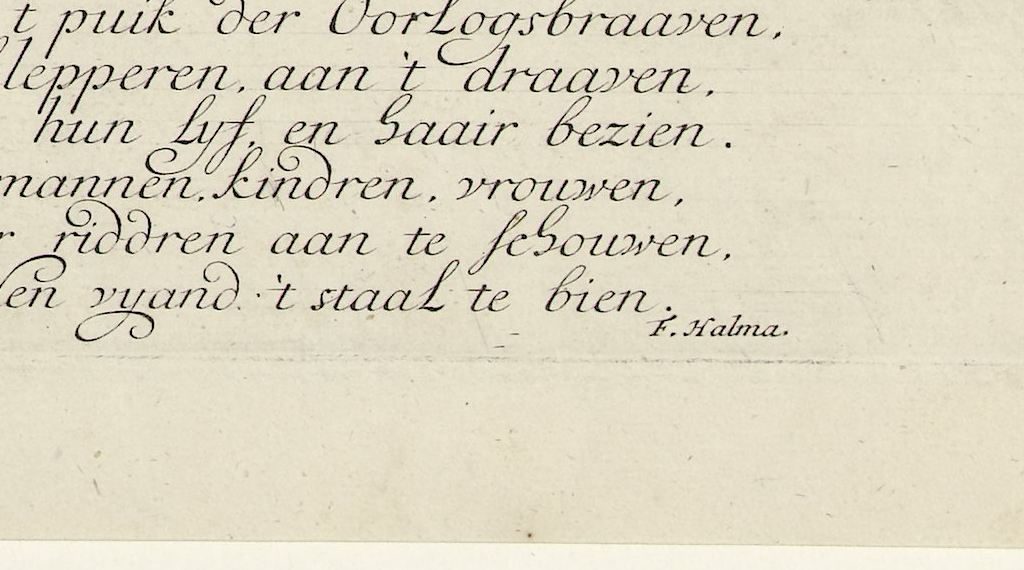 't puik der Oorlogsbraaven,
klepperen, aan 't draaven,
hun Lyf, en haair bezien.
mannen, kindren, vrouwen,
riddren aan te schouwen,
den vyand 't staal te bien.
F. Halma.